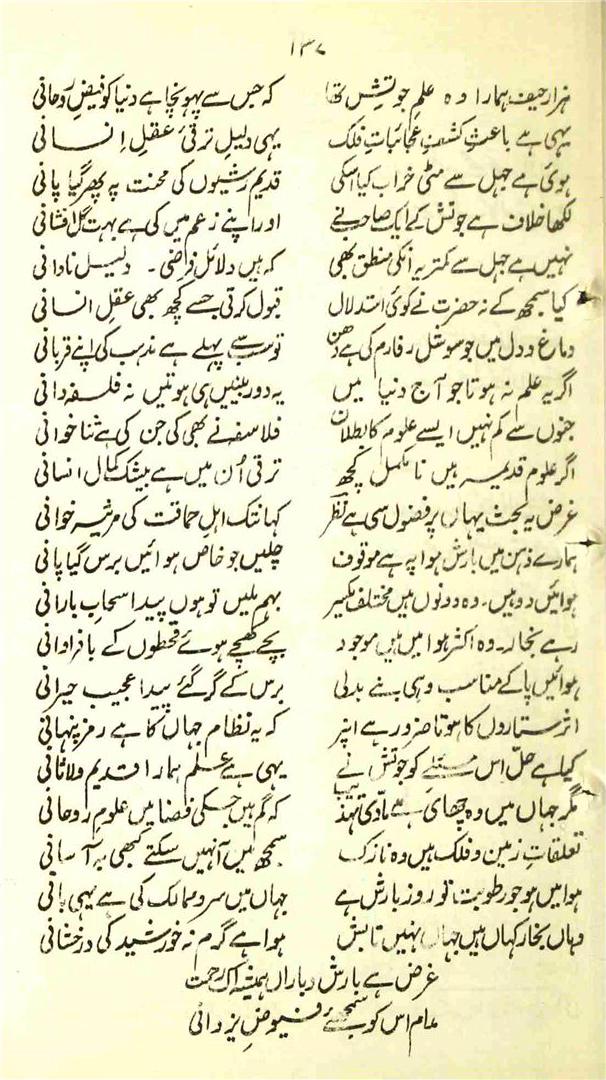 ۱۳۷
ہزار حیف ہمارا وہ علم جوتش تھا کہ جس سے پہونچا ہے دنیا کو فیض روحانی
یہی ہے باعث کشف عجائبات فلک یہی دلیل ترقئ عقل انسانی
ہوئی ہے جہل سے مٹی خراب کیا اسکی قدیم رشیوں کی محنت پہ پھر گیا پانی
لکھا خلاف ہے جوتش کے ایک صاحب نے اور اپنے زعم میں کی ہے بہت گل افشانی
نہیں ہے جہل سے کمتر یہ انکی منطق بھی کہ ہیں دلائل فراضی ۔ دلیل نادانی
کیا سمجھ کے نہ حضرت نے کوئی استدلال قبول کرتی جسے کچھ بھی عقل انسانی
دماغ و دل میں جو سوشل رفارم کی ہے دھن تو سب سے پہلے ہے مذہب کی اپنے قربانی
اگر یہ علم نہ ہوتا جو آج دنیا میں یہ دوربینیں ہی ہوتیں نہ فلسفہ دانی
جنوں سے کم نہیں ایسے علوم کا بطلان فلاسفہ نے بھی کی جن کی ہے ثنا خوانی
اگر علوم قدیمہ ہیں نامکمل کچھ ترقی اُن میں ہے بیشک کمال انسانی
غرض یہ بحث یہاں پر فضول سی ہے نظر کہانتک اہل حماقت کی مرثیہ خوانی
ہمارے ذہن میں بارش ہوا پہ ہے موقوف چلیں جو خاص ہوائیں برس گیا پانی
ہوائیں دو ہیں ۔ وہ دونوں ہیں مختلف بہم ملیں تو ہوں پیدا سحاب بارانی
رہے بخار ۔ وہ اکثر ہوا میں ہیں موجود بچے کھچے ہوئے قحطوں کے با فراوانی
ہوائیں پا کے مناسب وہی بنے بدلی برس کے گر گئے پیدا عجیب حیرانی
اثر ستاروں کا ہوتا ضرور ہے انپر کہ یہ نظام جہاں کا ہے رمز پنہانی
کیا ہے حل اس مسئلے کو جوتش نے یہی ہے علم ہمارا قدیم ولاثانی
مگر جہاں میں وہ چھائی ہے مادّی تہذیب کہ گم ہیں جسکی فضا میں علوم روحانی
تعلقات زمین و فلک ہیں وہ نازک سمجھ میں آ نہیں سکتے کبھی بہ آسانی
ہوا میں ہو جو رطوبت تو روز بارش ہے جہاں میں سرد ممالک کی ہے یہی بانی
وہاں بخار کہاں ہیں جہاں نہیں تابش ہوا ہے گرم نہ خورشید کی درخشانی
غرض ہے بارش و باراں ہمیشہ اک رحمت
عام اس کو سمجھئے فیوض یزدانی